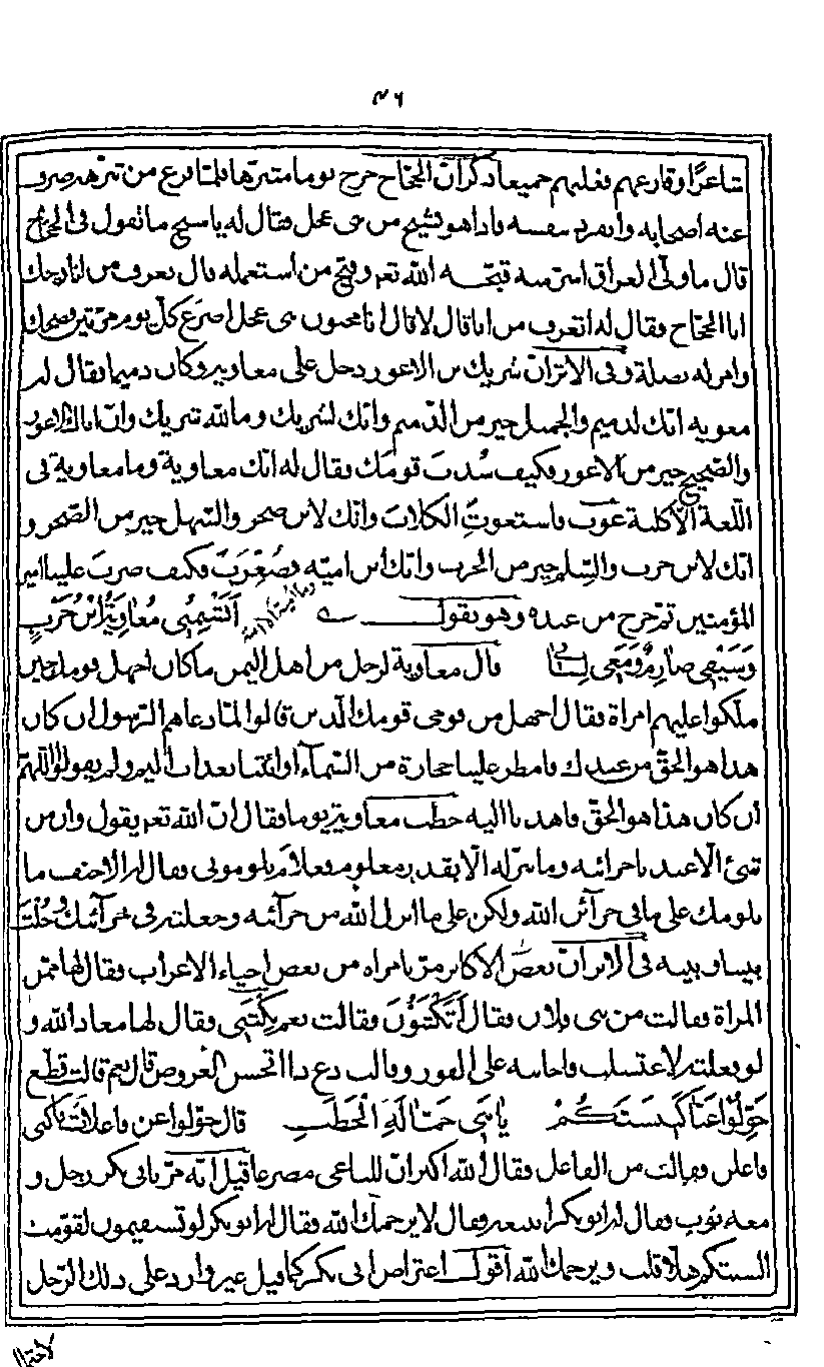 ٤٦
شاعرًا وقارعهم فغلبهم جميعا ذكر انّ الحجّاج خرج يوما متنزّها فلمّا فرغ من تنزّهه صرف
عنه اصحابه وانفرد بنفسه فاذا هو بشيخ من بنى عجل فقال له يا شيخ ما تقول فى الحجّاج
قال ما ولّى العراق اشرّ منه قبّحه الله تعـ وقبّح من استعمله قال تعرف من انا قال
انا الحجّاج فقال له اتعرف من انا قال لا قال انا مجنون بنى عجل اصرع كلّ يوم مرّتين فضحك
وامر له بصلة وفى الاثر انّ شريك بن الاعور دخل على معاوية وكان دميما فقال له
معوية انّك لدميم والجميل خير من الدّميم وانّك لشريك وما لله شريك وانّ اباك الاعور
والصّحيح خير من الاعور فكيف سُدتَ قومك فقال له انّك معاوية وما معاوية فى
اللّغة الّا كلبة عوت فاستعوتِ الكلابَ وانّك لابن صخر والسّهل خير من الصّخر و
انّك لابن حرب والسِّلم خير من الحرب وانّك ابن اميّه فصُغِّرَت فكيف صرت علينا امير
المؤمنين ثمّ خرج من عنده وهو يقول اَتَشْتِمُنى مُعاوِيَةُ ابْنُ حَرْبٍ
وَسَيْفى صارِمٌ وَمَعى لِسانى قال معاوية لرجل من اهل اليمن ما كان اجهل قومك حين
ملكوا عليهم امراة فقال اجهل من قومى قومك الّذين قالوا لمّا دعاهم الرّسول ان كان
هذا هو الحقّ من عندك فامطر علينا حجارة من السّمآء او ائتنا بعذاب اليم ولم يقولوا اللّهمّ
ان كان هذا هو الحقّ فاهدنا اليه خطب معاوية يوما فقال انّ الله تعـ يقول وان من
شئ الّا عندنا خزائنه وما ننزله الّا بقدر معلوم فعلام تلومونى فقال له الاحنف ما
نلومك على ما فى خزآئن الله ولكن على ما انزل الله من خزآئنه وجعلته فى خزآئنك وحُلْتَ
بيننا وبينه فى الاثر انّ بعض الاكابر مرّ بامراه من بعض احياء الاعراب فقال لها ممّن
المراة فقالت من بنى فلان فقال أَتَكْتَنُونَ فقالت نعم نَكْتَنى فقال لها معاذ الله و
لو فعلته لاغتسلت فاجابته على الفور وقالت دع ذا اتحسن العروض قال نعم قالت قطّع
حَوِّلُوا عَنّا كَنيسَتَكُمْ يا بَنى حَمّالَةِ الْحَطَبِ قال حوّلوا عن فاعلاتن ناكنى
فاعلن فقالت من الفاعل فقال الله اكبر انّ للباغى مصرعا قيل انّه مرّ بابى بكر رجل و
معه ثوب فقال له ابو بكر اتبيعه فقال لا يرحمك الله فقال له ابو بكر لو تستقيمون لقوّمت
السنتكم هلّا قلت لا ويرحمك الله اقول اعتراض ابى بكر كما قيل غير وارد على ذلك الرّجل
لاحتمال